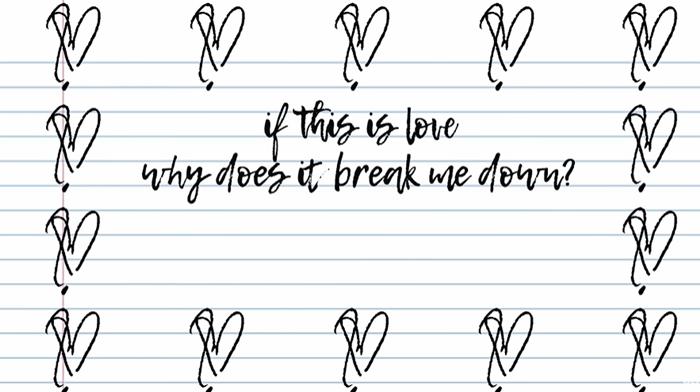 if this is love
why does it break me down?